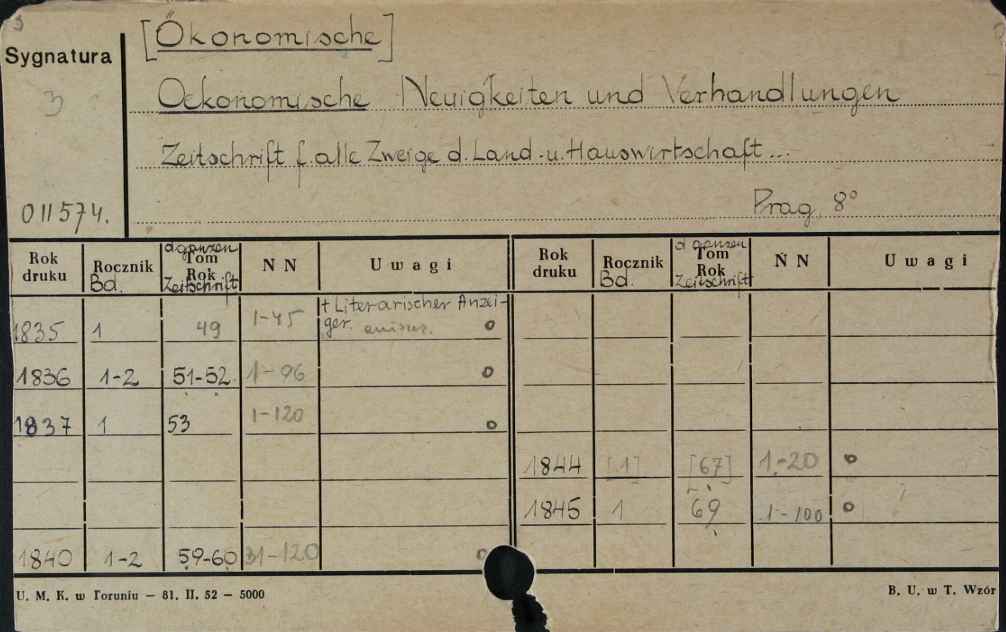 3
[Ökonomische]
Sygnatura
3
Oekonomische Neuigkeiten und Verhandlungen
Zeitschrift f. alle Zweige d. Land- u. Hauswirtschaft...
011574.
Prag, 8°
Rok druku Rocznik Bd. d ganzen Tom Rok Zeitschrift NN Uwagi Rok druku Rocznik Bd. d ganzen Tom Rok Zeitschrift NN Uwagi
1835 1 49 1-45 + Literarischer Anzeiger. o
1836 1-2 51-52 1-96 o
1837 1 53 1-120 o
1844 [1] [67] 1-20 o
1845 1 69 1-100 o
1840 1-2 59-60 31-120 o
U. M. K. w Toruniu — 81. II. 52 — 5000
B. U. w T. Wzór